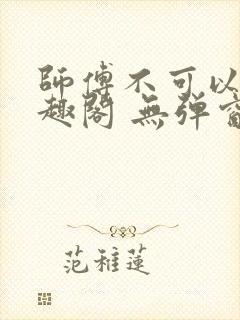 師傅不可以
趣閣 無彈窗
范雅蓮